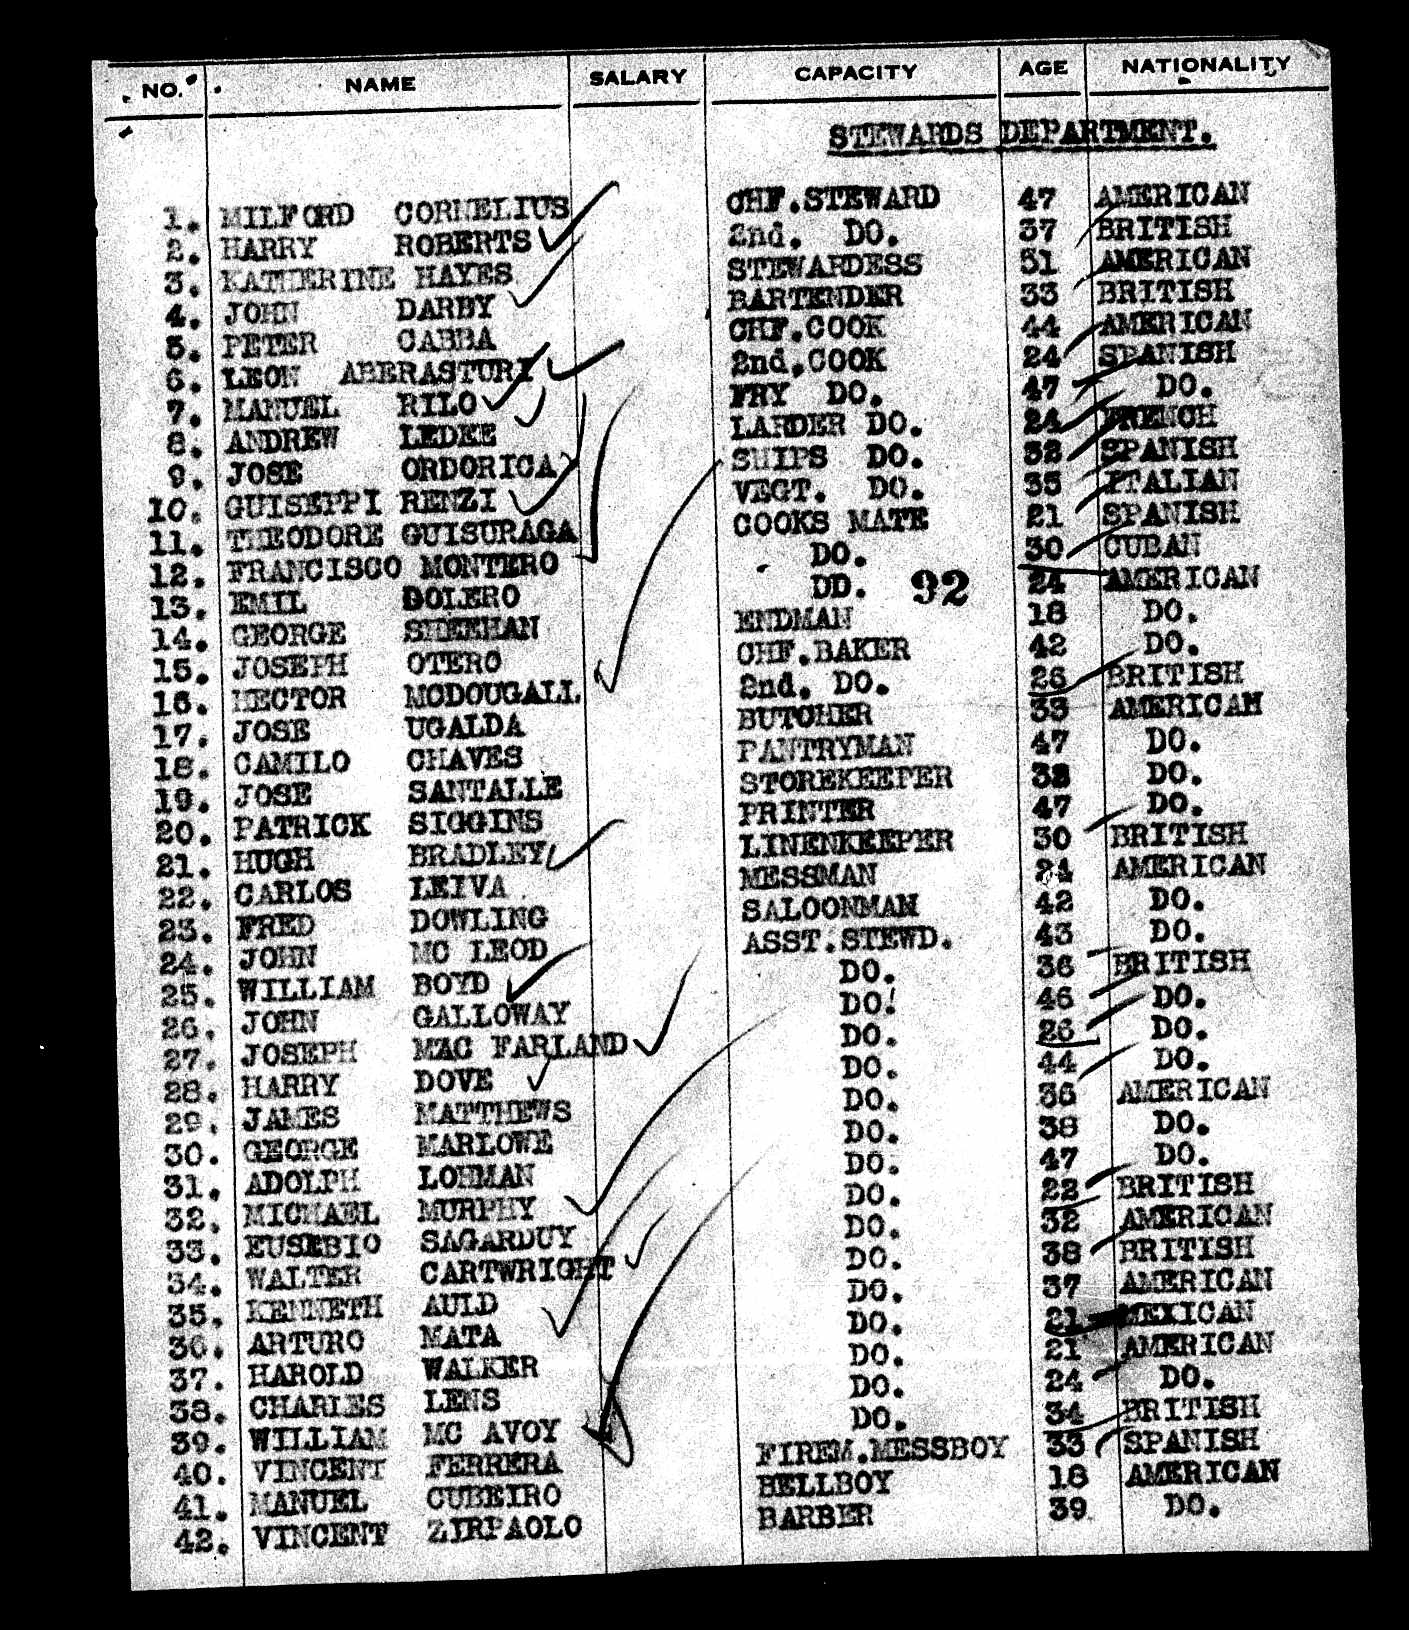 NO. NAME SALARY CAPACITY AGE NATIONALITY
STEWARDS DEPARTMENT.
1. MILFORD CORNELIUS CHF.STEWARD 47 AMERICAN
2. HARRY ROBERTS 2nd. DO. 37 BRITISH
3. KATHERINE HAYES STEWARDESS 51 AMERICAN
4. JOHN DARBY BARTENDER 33 BRITISH
5. PETER CABBA CHF.COOK 44 AMERICAN
6. LEON ABERASTURI 2nd.COOK 24 SPANISH
7. MANUEL RILO FRY DO. 47 DO.
8. ANDREW LEDEE LARDER DO. 24 FRENCH
9. JOSE ORDORICA SHIPS DO. 32 SPANISH
10. GUISEPPI RENZI VEGT. DO. 35 ITALIAN
11. THEODORE GUISURAGA COOKS MATE 21 SPANISH
12. FRANCISCO MONTERO DO. 30 CUBAN
13. EMIL BOLERO DD. 92 24 AMERICAN
14. GEORGE SHEEHAN ENDMAN 18 DO.
15. JOSEPH OTERO CHF.BAKER 42 DO.
16. HECTOR MCDOUGALL 2nd. DO. 26 BRITISH
17. JOSE UGALDA BUTCHER 33 AMERICAN
18. CAMILO CHAVES PANTRYMAN 47 DO.
19. JOSE SANTALLE STOREKEEPER 38 DO.
20. PATRICK SIGGINS PRINTER 47 DO.
21. HUGH BRADLEY LINENKEEPER 30 BRITISH
22. CARLOS LEIVA MESSMAN 24 AMERICAN
23. FRED DOWLING SALOONMAN 42 DO.
24. JOHN MC LEOD ASST.STEWD. 43 DO.
25. WILLIAM BOYD DO. 36 BRITISH
26. JOHN GALLOWAY DO. 46 DO.
27. JOSEPH MAC FARLAND DO. 26 DO.
28. HARRY DOVE DO. 44 DO.
29. JAMES MATTHEWS DO. 36 AMERICAN
30. GEORGE MARLOWE DO. 38 DO.
31. ADOLPH LOHMAN DO. 47 DO.
32. MICHAEL MURPHY DO. 22 BRITISH
33. EUSEBIO SAGARDUY DO. 32 AMERICAN
34. WALTER CARTWRIGHT DO. 38 BRITISH
35. KENNETH AULD DO. 37 AMERICAN
36. ARTURO MATA DO. 21 MEXICAN
37. HAROLD WALKER DO. 21 AMERICAN
38. CHARLES LENS DO. 24 DO.
39. WILLIAM MC AVOY DO. 34 BRITISH
40. VINCENT FERRERA FIREM.MESSBOY 33 SPANISH
41. MANUEL CUBEIRO BELLBOY 18 AMERICAN
42. VINCENT ZIRPAOLO BARBER 39 DO.